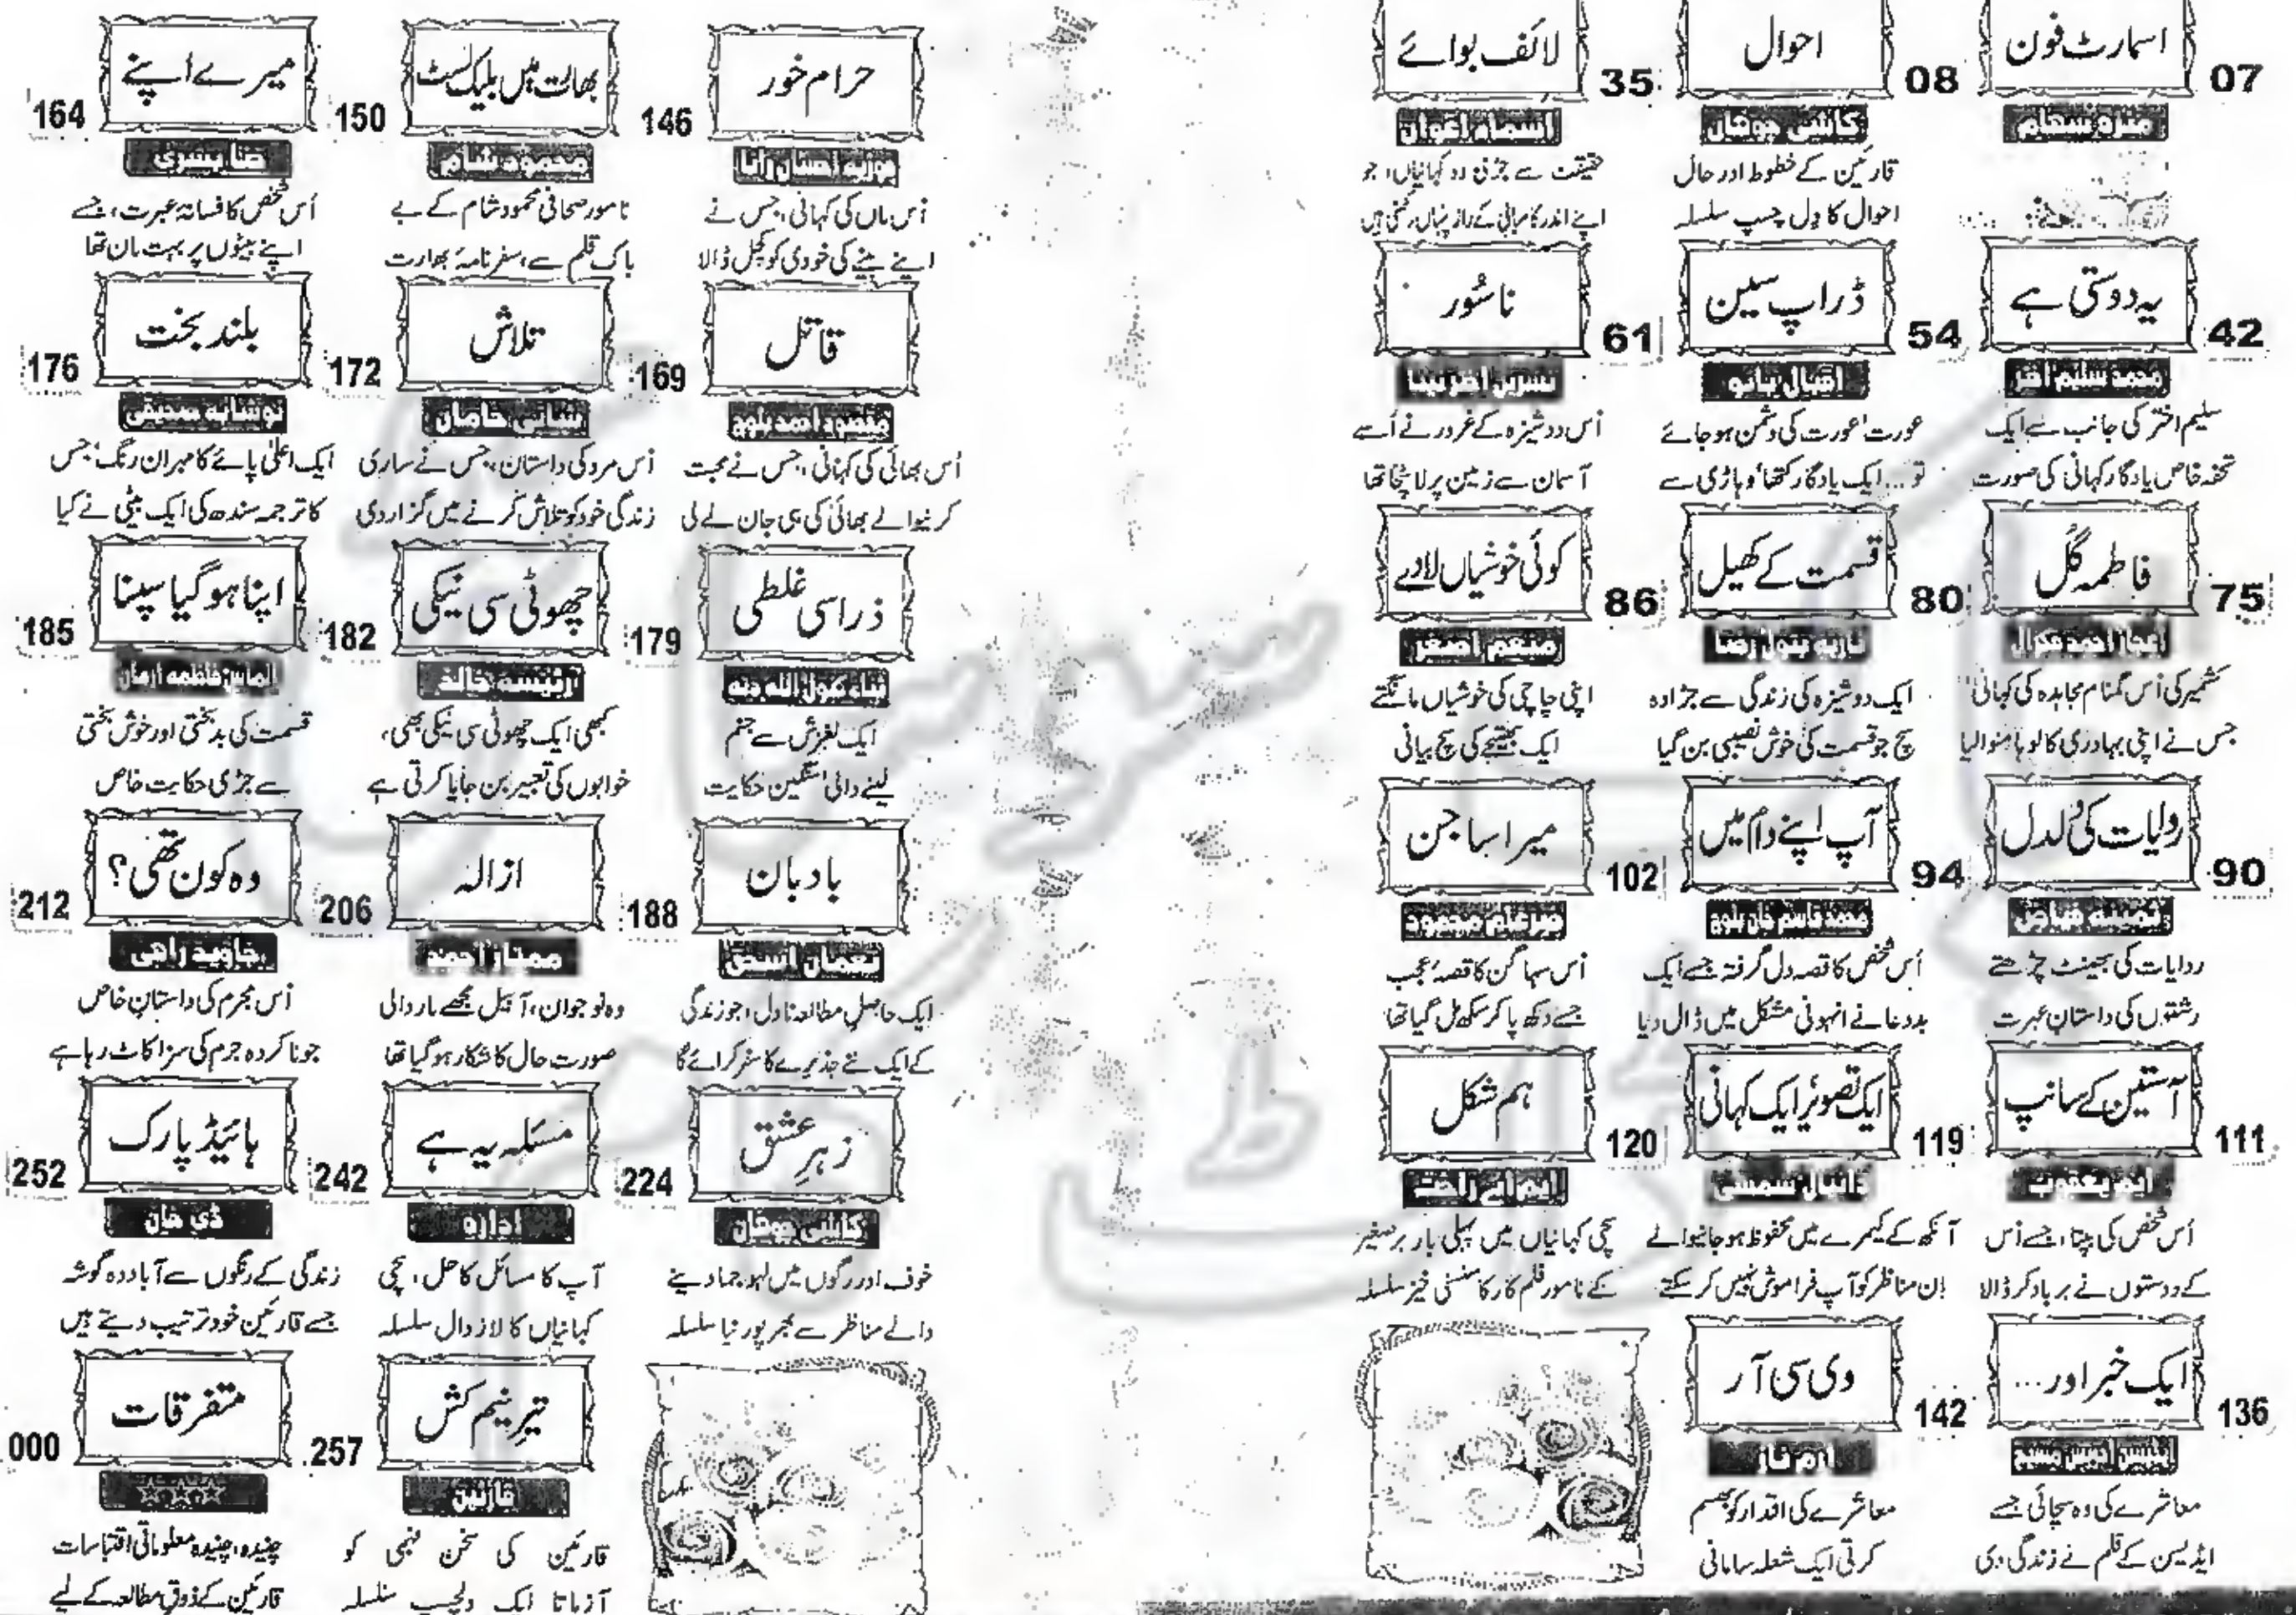 اسمارٹ فون
07
منزہ سہام
احوال
08
کاشی چوہان
قارئین کے خطوط اور حال
احوال کا دِل چسپ سلسلہ
لائف بوائے
35
اسماء اعوان
حقیقت سے جڑی وہ کہانیاں، جو
اپنے اندر کامیابی کے راز پنہاں رکھتی ہیں
یہ دوستی ہے
42
محمد سلیم اختر
سلیم اختر کی جانب سے ایک
تحفہ خاص یادگار کہانی کی صورت
ڈراپ سین
54
اقبال بانو
عورت، عورت کی دشمن ہو جائے
تو... ایک یادگار کتھا، وہاڑی سے
ناسُور
61
نسرین اختر نینا
اُس دوشیزہ کے غرور نے اُسے
آسمان سے زمین پر لا پٹخا تھا
فاطمہ گُل
75
اعجاز احمد
کشمیر کی اُس گمنام مجاہدہ کی کہانی
جس نے اپنی بہادری کا لوہا منوالیا
قسمت کے کھیل
80
نازیہ بتول رضا
ایک دوشیزہ کی زندگی سے جڑا وہ
سچ جو قسمت کی خوش نصیبی بن گیا
کوئی خوشیاں لادے
86
منعم اصغر
اپنی چاچی کی خوشیاں مانگتے
ایک بھتیجے کی سچ بیانی
روایات کی دلدل
90
ثمینہ فیاض
روایات کی بھینٹ چڑھتے
رشتوں کی داستانِ عبرت
آپ اپنے دام میں
94
محمد قاسم خان بلوچ
اُس شخص کا قصہ دل گرفتہ جسے ایک
بددعا نے انہونی مشکل میں ڈال دیا
میرا ساجن
102
محمود
اُس سہاگن کا قصۂ عجب
جسے دکھ پا کر سکھ مل گیا تھا
آستین کے سانپ
111
ایم یعقوب
اُس شخص کی بپتا، جسے اُس
کے دوستوں نے برباد کر ڈالا
ایک تصویر ایک کہانی
119
دانیال شمسی
آنکھ کے کیمرے میں محفوظ ہو جانیوالے
اِن مناظر کو آپ فراموش نہیں کر سکتے
ہم شکل
120
ایم اے راحت
سچی کہانیاں میں پہلی بار برصغیر
کے نامور قلم کار کا سنسنی خیز سلسلہ
ایک خبر اور...
136
ایڈیسن ادریس مسیح
معاشرے کی وہ سچائی جسے
ایڈیسن کے قلم نے زندگی دی
وی سی آر
142
ارم ناز
معاشرے کی اقدار کو بھسم
کرتی ایک شعلہ سامانی
حرام خور
146
جویریہ احسان رانا
اُس ماں کی کہانی، جس نے
اپنے بیٹے کی خودی کو کچل ڈالا
بھارت میں بلیک لسٹ
150
محمود شام
نامور صحافی محمود شام کے بے
باک قلم سے، سفر نامۂ بھارت
میرے اپنے
164
حنا بشریٰ
اُس شخص کا فسانۂ عبرت، جسے
اپنے بیٹوں پر بہت مان تھا
قاتل
169
مقصود احمد بلوچ
اُس بھائی کی کہانی، جس نے محبت
کرنیوالے بھائی کی ہی جان لے لی
تلاش
172
شانی خاصان
اُس مرد کی داستان، جس نے ساری
زندگی خود کو تلاش کرنے میں گزار دی
بلند بخت
176
نوشابہ صدیقی
ایک اعلیٰ پائے کا مہران رنگ، جس
کا ترجمہ سندھ کی ایک بیٹی نے کیا
ذرا سی غلطی
179
ایک لغزش سے جنم
لینے والی سنگین حکایت
چھوٹی سی نیکی
182
رئیسہ خالد
کبھی ایک چھوٹی سی نیکی بھی،
خوابوں کی تعبیر بن جایا کرتی ہے
اپنا ہو گیا سپنا
185
الماس فاطمہ ارمان
قسمت کی بدبختی اور خوش بختی
سے جڑی حکایت خاص
بادبان
188
نعمان اسحٰق
ایک حاصلِ مطالعہ ناول، جو زندگی
کے ایک نئے جذیرے کا سفر کرائے گا
ازالہ
206
ممتاز احمد
وہ نوجوان، آ بیل مجھے مار والی
صورت حال کا شکار ہو گیا تھا
وہ کون تھی؟
212
جاوید راہی
اُس مجرم کی داستانِ خاص
جو ناکردہ جرم کی سزا کاٹ رہا ہے
زہرِ عشق
224
کاشی چوہان
خوف اور رگوں میں لہو جما دینے
والے مناظر سے بھرپور نیا سلسلہ
مسئلہ یہ ہے
242
ادارہ
آپ کا مسائل کا حل، سچی
کہانیاں کا لازوال سلسلہ
ہائیڈ پارک
252
ڈی خان
زندگی کے رنگوں سے آباد وہ گوشہ
جسے قارئین خود ترتیب دیتے ہیں
تیرِ نیم کش
257
قارئین
قارئین کی سخن فہمی کو
آزماتا ایک دلچسپ سلسلہ
متفرقات
000
☆☆☆
چنیدہ، چنیدہ معلوماتی اقتباسات
قارئین کے ذوقِ مطالعہ کے لیے